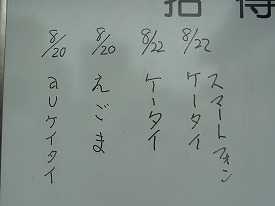 拾得
8/22
スマートフォン
ケータイ
8/22
ケータイ
8/20
えごま
8/20
auケイタイ